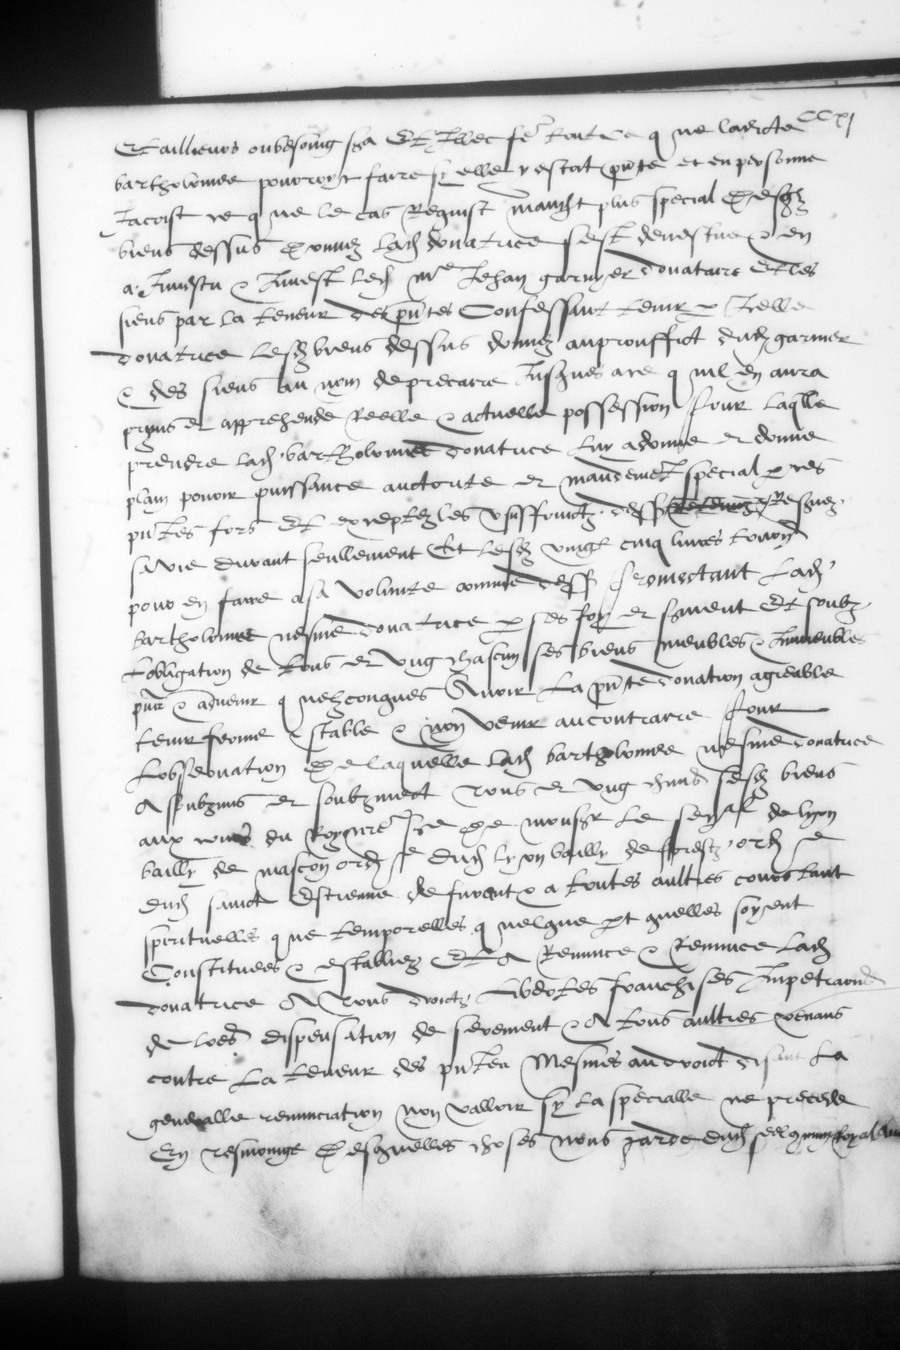 CCxj
Et ailleurs ou besoing sera Et Illec fe tout ce que ladicte
bartholomee pourroyt faire sy elle y estoit pnte et en personne
Jacoist ce que le cas Requist mandt plus special Desqlz
biens dessus donnez lad donatrice sest devestue & en
a Investu & Investt led me Jehan garnyer donataire et les
siens par la teneur des pntes Confessant tenir Icelle
donatrice lesd biens dessus donnez au prouffict dud garnier
& des siens au nom de precaire Jusques a ce quil en aura
prins et apprehende Reelle & actuelle possession pour laqlle
prendre lad bartholomee donatrice luy a donne et donne
plain pouvoir puissance auctorite et mandemet special p ces
pntes fors Et exceptez les usuffruictz dessus Reservez
sa vie durant seullement Et lesd vingt cinq livres tourn
pour en faire a sa volunte comme dess promectant lad
Bartholomee mesme donatrice p ses foy et serment Et soubz
lobligation de tous et ung chascun ses biens meubles & Immeubles
pns & advenir quelzconques Avoir la pnte donation agreable
tenir ferme & stable & non venir au contraire pour
lobservation de laquelle lad bartholomee mesme donatrice
A soubzmis et soubzmect tous et ung chund sesd biens
aux cours du Roy nre sre de monsgr le senal de lyon
bailly de mascon ordre dud lyon bailly de forestz ordre
dud sainct Estienne de furant & a toutes aultres cours tant
spirituelles que temporelles quelque part quelles soyent
Constituees & establies Et A Renunce & Renunce lad
donatrice A tous droictz libertes franchises Impetraond
de lres dispensation de serement & A tous aultres venans
contre la teneur des pntes Mesmes au droict disant la
generalle renunciation non valloir sy la specialle ne precede
En tesmoing Desquelles choses nous garde dud seel commun Royal